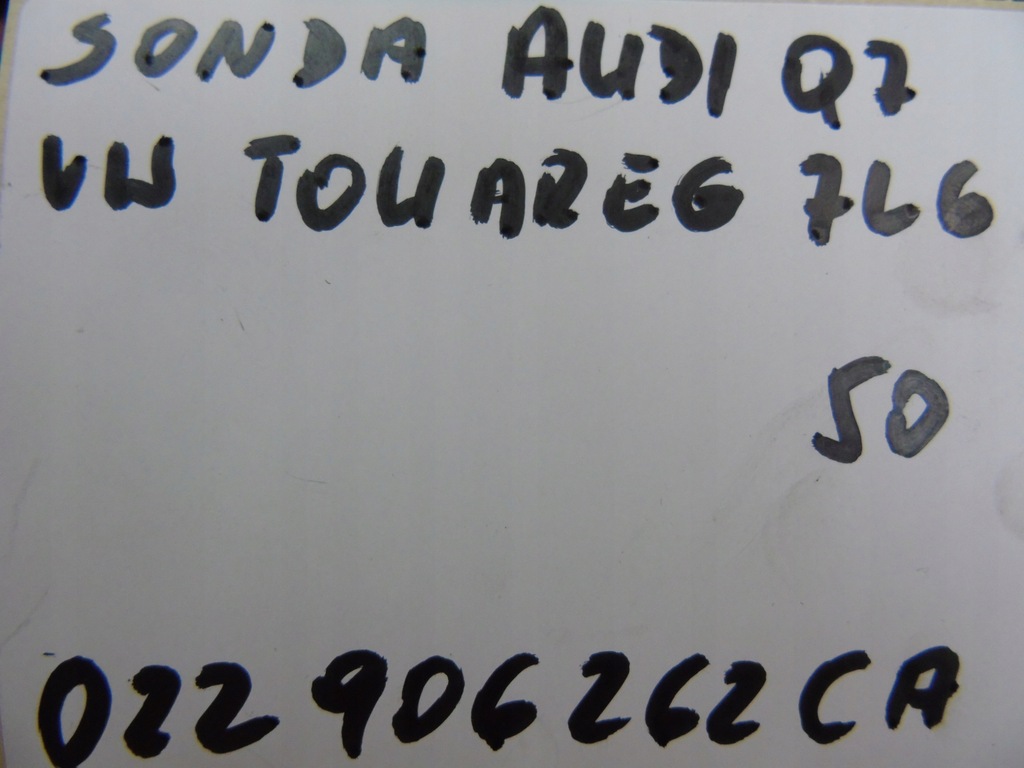 SONDA AUDI Q7
VW TOUAREG 7L6
50
022 906 262 CA